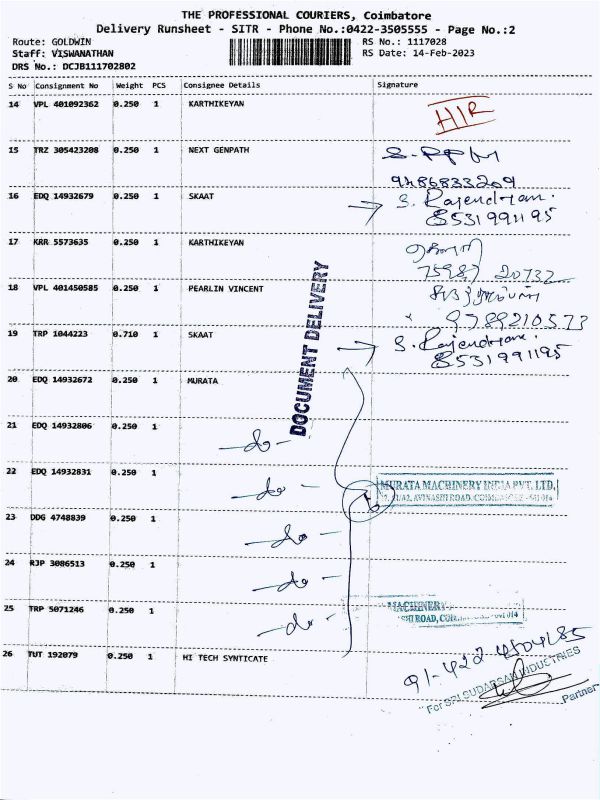 THE PROFESSIONAL COURIERS, Coimbatore
Delivery Runsheet - SITR - Phone No.:0422-3505555 - Page No.:2
Route: GOLDWIN
RS No.: 1117028
Staff: VISWANATHAN
RS Date: 14-Feb-2023
DRS No.: DCJB111702802
S No Consignment No Weight PCS Consignee Details Signature
14 VPL 401092362 0.250 1 KARTHIKEYAN
15 TRZ 305423208 0.250 1 NEXT GENPATH
9486833209
16 EDQ 14932679 0.250 1 SKAAT S. Rajendran.
8531991195
17 KRR 5573635 0.250 1 KARTHIKEYAN
75987 20732
18 VPL 401450585 0.250 1 PEARLIN VINCENT
9789210573
19 TRP 1044223 0.710 1 SKAAT S. Rajendran.
8531991195
DOCUMENT DELIVERY
20 EDQ 14932672 0.250 1 MURATA
21 EDQ 14932806 0.250 1
-do-
22 EDQ 14932831 0.250 1
-do-
MURATA MACHINERY INDIA PVT. LTD,
AVINASHI ROAD, COIMBATORE - 641 014
23 DDG 4748839 0.250 1
-do-
24 RJP 3086513 0.250 1
-do-
25 TRP 5071246 0.250 1
MACHINERY
SHI ROAD,
-do-
26 TUT 192079 0.250 1 HI TECH SYNTICATE
91-422 4504185
For SRI SUDARSAN INDUCTRIES
Partner